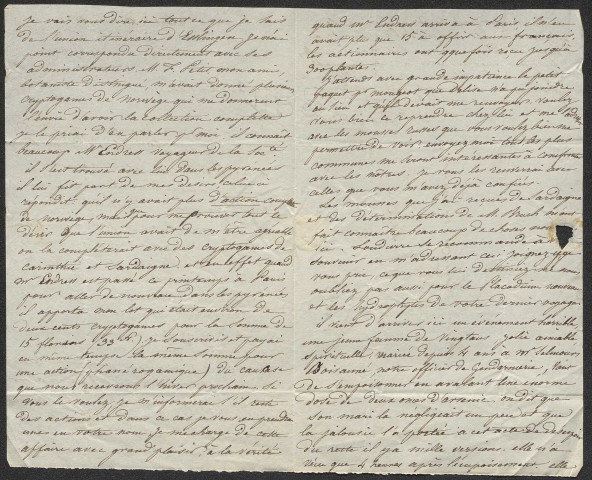 je vais vous dire ici tout ce que je sais
de l'union itinéraire d'Esslingen je n'ai
point correspondu directement avec ses
administrateurs. M. J. Petit mon ami,
botaniste distingué, m'avait donné plusieurs
cryptogames de Norwège qui me donnèrent
l'envie d'avoir la collection complette
je le priai d'en parler pr moi il connait
beaucoup Mr Endress voyageur de la Socté
il s'est trouvé avec lui dans les pyrenées
il lui fit part de mes désirs celui ci
répondit qu'il n'y avait plus d'action
de norwège, mais pour me prouver tout le
désir que l'union avait de m'être agréable
on la completterait avec des cryptogames de
carinthie et Sardaigne, et en effet quand
Mr Endress est passé ce printemps à Paris
pour aller de nouveau dans les pyrenées
il apporta mon lot qui était environ de
deux cents cryptogames pour la somme de
15 florens (33 f.) je souscrivis et payai
en même temps la même somme pour
une action (phanérogamique) du caucase
que nous recevrons l'hiver prochain. Si
vous le voulez je m'informerai s'il reste
des actions et dans ce cas pourrai en prendre
une en votre nom je me charge de cette
affaire avec grand plaisir, à la vérité
quand Mr Endress arriva à Paris il n'en
avait plus que 15 à offrir aux français,
les actionnaires ont qque fois reçu jusqu'à
300 plantes.
J'attends avec grande impatience le petit
paquet pr mougeot que Delise n'a pu joindre
au sien et qu'il devait me renvoyer, voulez
vous bien le reprendre chez lui et me l'
avec les mousses russes que vous voulez bien me
permettre de voir, envoyez moi tout, les plus
communes me seront intéressantes à comparer
avec les notres, je vous les rendrai avec
celles que vous m'avez déjà confiées
Les mousses que j'ai reçues de Sardaigne
et des déterminations de M. Bruch m'ont
fait connaître beaucoup de choses
ici. Soudivre se recommande à
souvenir en m'adressant ceci joignez y je
vous prie, ce que vous lui destinez ne m'
oubliez pas aussi pour le Placodium
et les hydrophytes de votre dernier voyage.
Il vient d'arriver ici un évènement horrible,
une jeune femme de vingt ans, jolie aimable
spirituelle, mariée depuis 4 ans à Mr
Boisaune, notre officier de Gendarmerie, vient
de s'empoisonner en avalant une énorme
dose de deux onces d'arsenic, on dit que
son mari la négligeait un peu et que
la jalousie l'a portée à cet acte de désespoir
du reste il y a mille versions. elle n'a
vécu que 4 heures après l'empoisonnement, elle